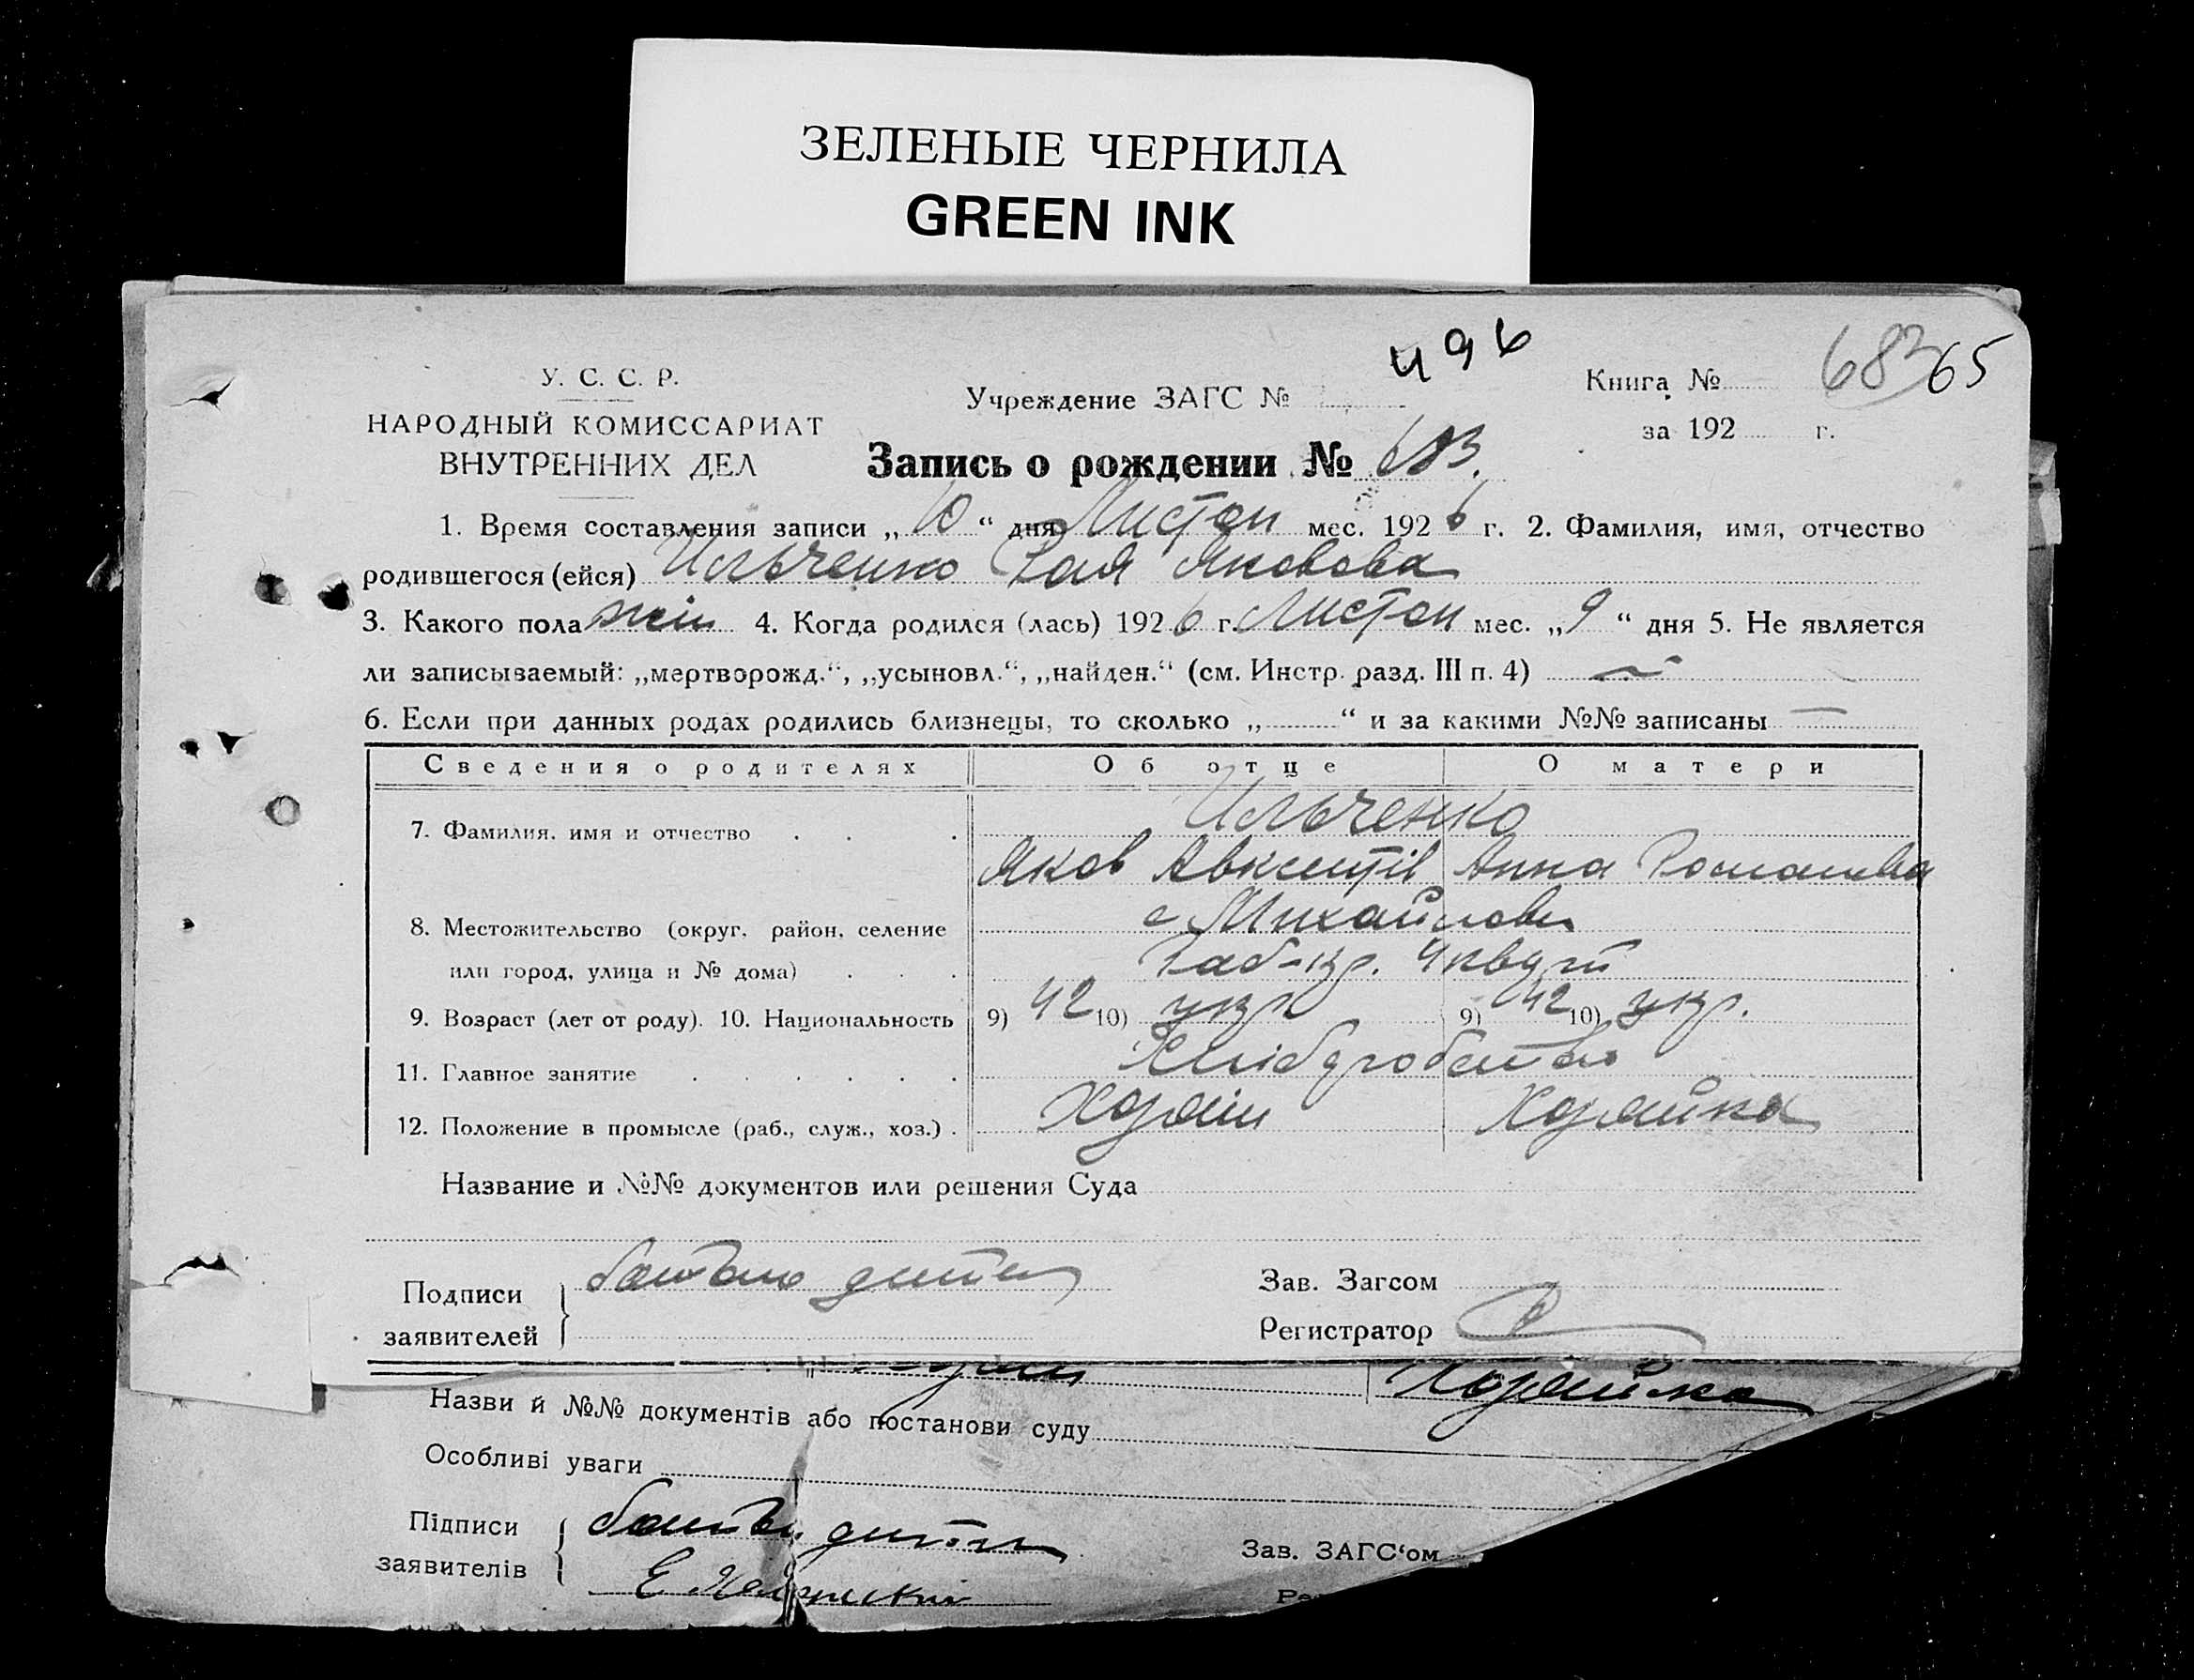 ЗЕЛЕНЫЕ ЧЕРНИЛА
GREEN INK
496
683 65
У. С. С. Р.
НАРОДНЫЙ КОМИССАРИАТ
ВНУТРЕННИХ ДЕЛ
Учреждение ЗАГС №
Книга №
за 192 г.
Запись о рождении № 683.
1. Время составления записи „ 10 “ дня Листоп мес. 1926 г. 2. Фамилия, имя, отчество
родившегося (ейся) Ильченко Рая Яковова
3. Какого пола жін 4. Когда родился (лась) 1926 г. Листоп мес. „ 9 “ дня 5. Не является
ли записываемый: „мертворожд.“, „усыновл.“, „найден.“ (см. Инстр. разд. III п. 4) —
6. Если при данных родах родились близнецы, то сколько „ “ и за какими №№ записаны —
Сведения о родителях Об отце О матери
7. Фамилия, имя и отчество Ильченко
Яков Авксентів Анна Романова
8. Местожительство (округ, район, селение с Михайловк
или город, улица и № дома)
9. Возраст (лет от роду). 10. Национальность 9) 42 10) укр 9) 42 10) укр.
11. Главное занятие Хлібороbство
12. Положение в промысле (раб., служ., хоз.) Хозяін Хозяйка
Название и №№ документов или решения Суда
Подписи батько дитини
заявителей
Зав. Загсом
Регистратор
Хозяйка
Назви й №№ документів або постанови суду
Особливі уваги
Підписи батьк дитини
заявителів Е
Зав. ЗАГС‘ом